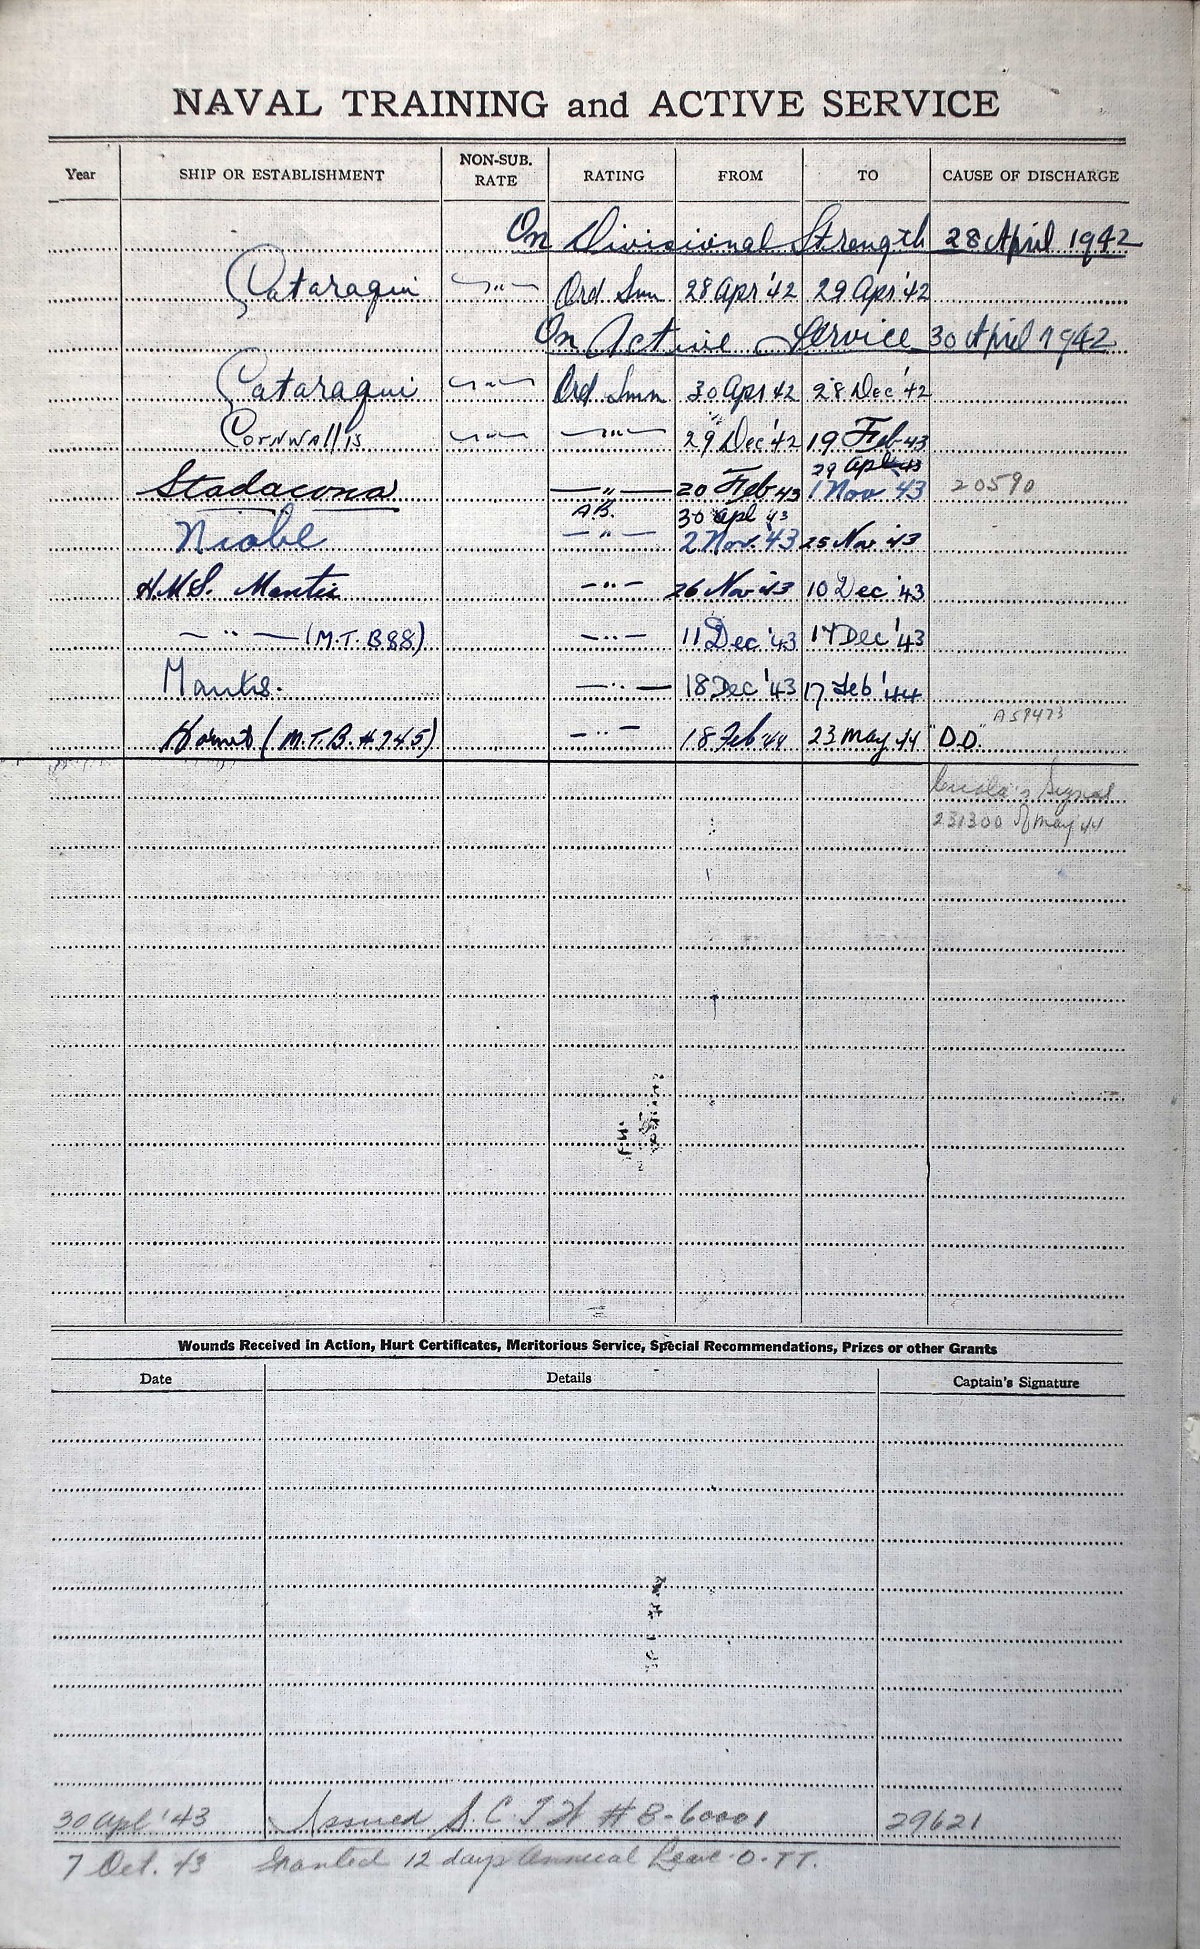 NAVAL TRAINING and ACTIVE SERVICE
Year SHIP OR ESTABLISHMENT NON-SUB. RATE RATING FROM TO CAUSE OF DISCHARGE
On Divisional Strength 28 April 1942
Cataraqui —"— Ord Smn 28 Apr '42 29 Apr '42
On Active Service 30 April 1942
Cataraqui —"— Ord Smn 30 Apr 42 28 Dec '42
Cornwallis —"— —"— 29 Dec '42 19 Feb 43
29 Apl 43
Stadacona —"— 20 Feb 43 1 Nov 43 20590
A.B. 30 Apl 43
Niobe —"— 2 Nov. '43 25 Nov 43
H.M.S. Mantis —"— 26 Nov 43 10 Dec '43
—"— (M.T.B 88) —"— 11 Dec '43 17 Dec '43
Mantis. —"— 18 Dec '43 17 Feb '44
A59473
Hornet (M.T.B. # 745) —"— 18 Feb 44 23 May 44 "D.D."
Signal
231300 of May 44
Wounds Received in Action, Hurt Certificates, Meritorious Service, Special Recommendations, Prizes or other Grants
Date Details Captain's Signature
30 Apl '43 Issued S.C. # B-60001 29621
7 Oct. 43 Granted 12 days Annual Leave.